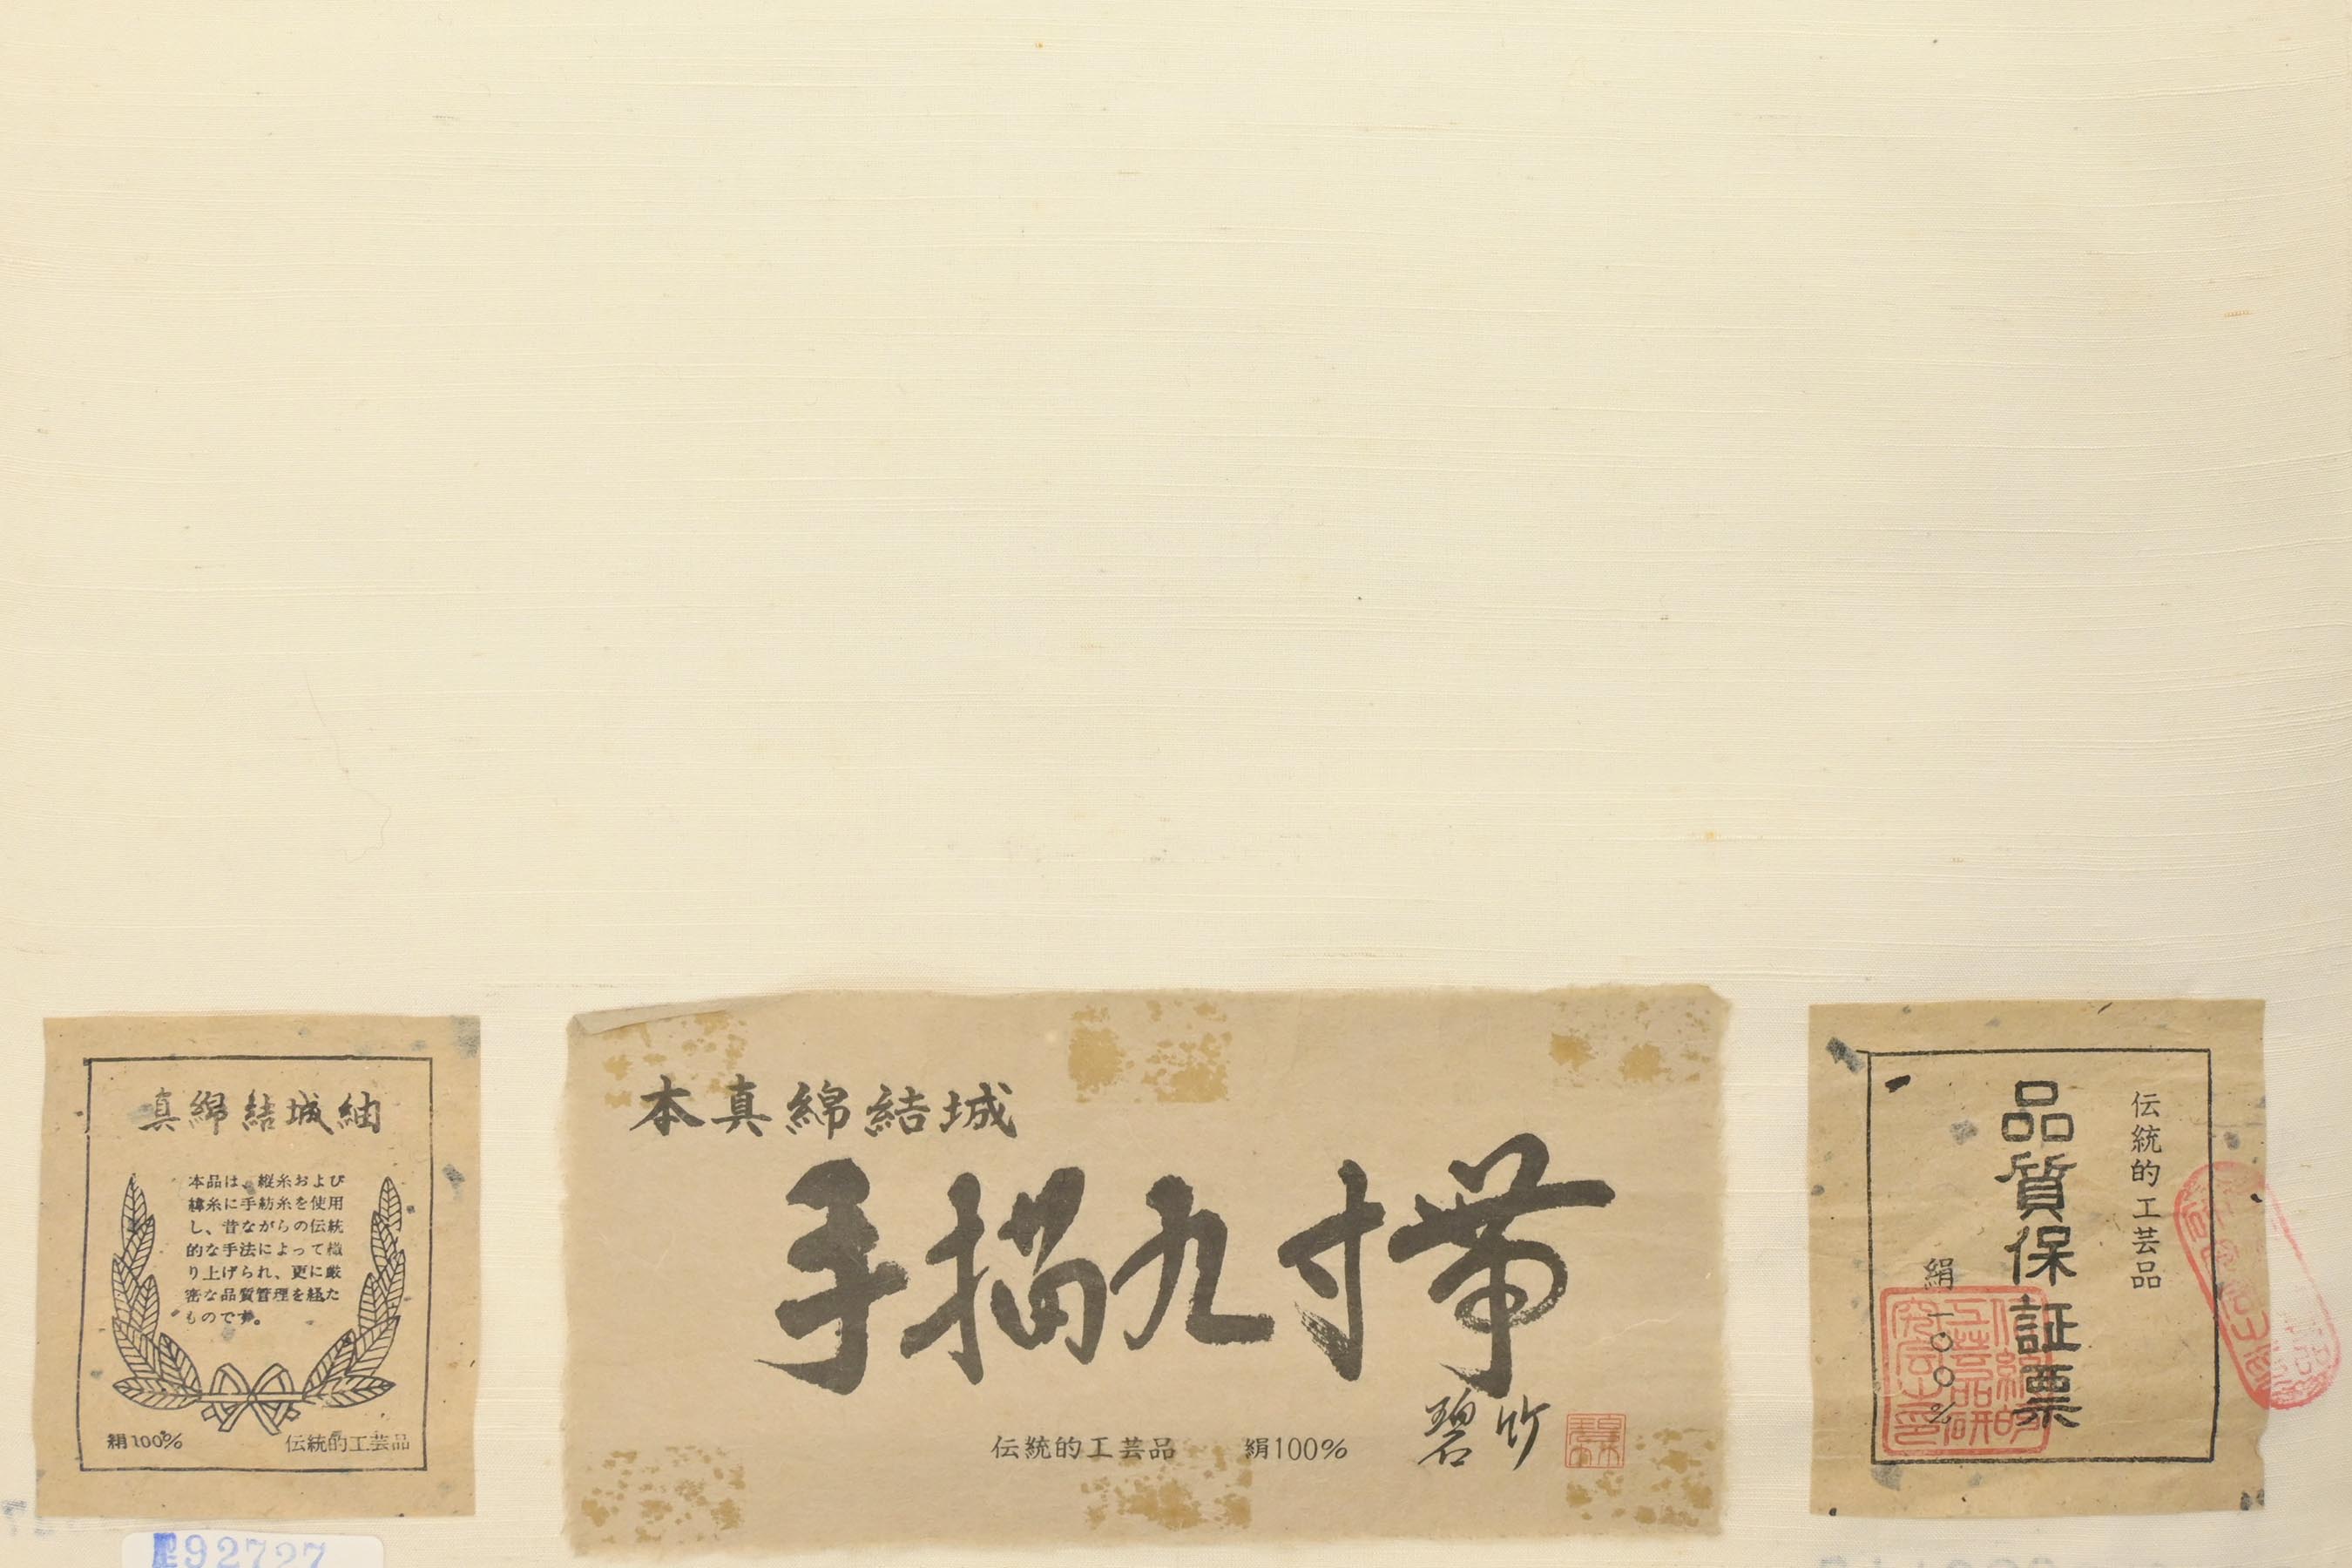 真綿結城紬
本品は、縦糸および
緯糸に手紡糸を使用
し、昔ながらの伝統
的な手法によって織
り上げられ、更に厳
密な品質管理を経た
ものです。
絹100%
伝統的工芸品
92727
本真綿結城
手描九寸帯
碧竹
伝統的工芸品
絹100%
伝統的工芸品
品質保証票
絹一〇〇%